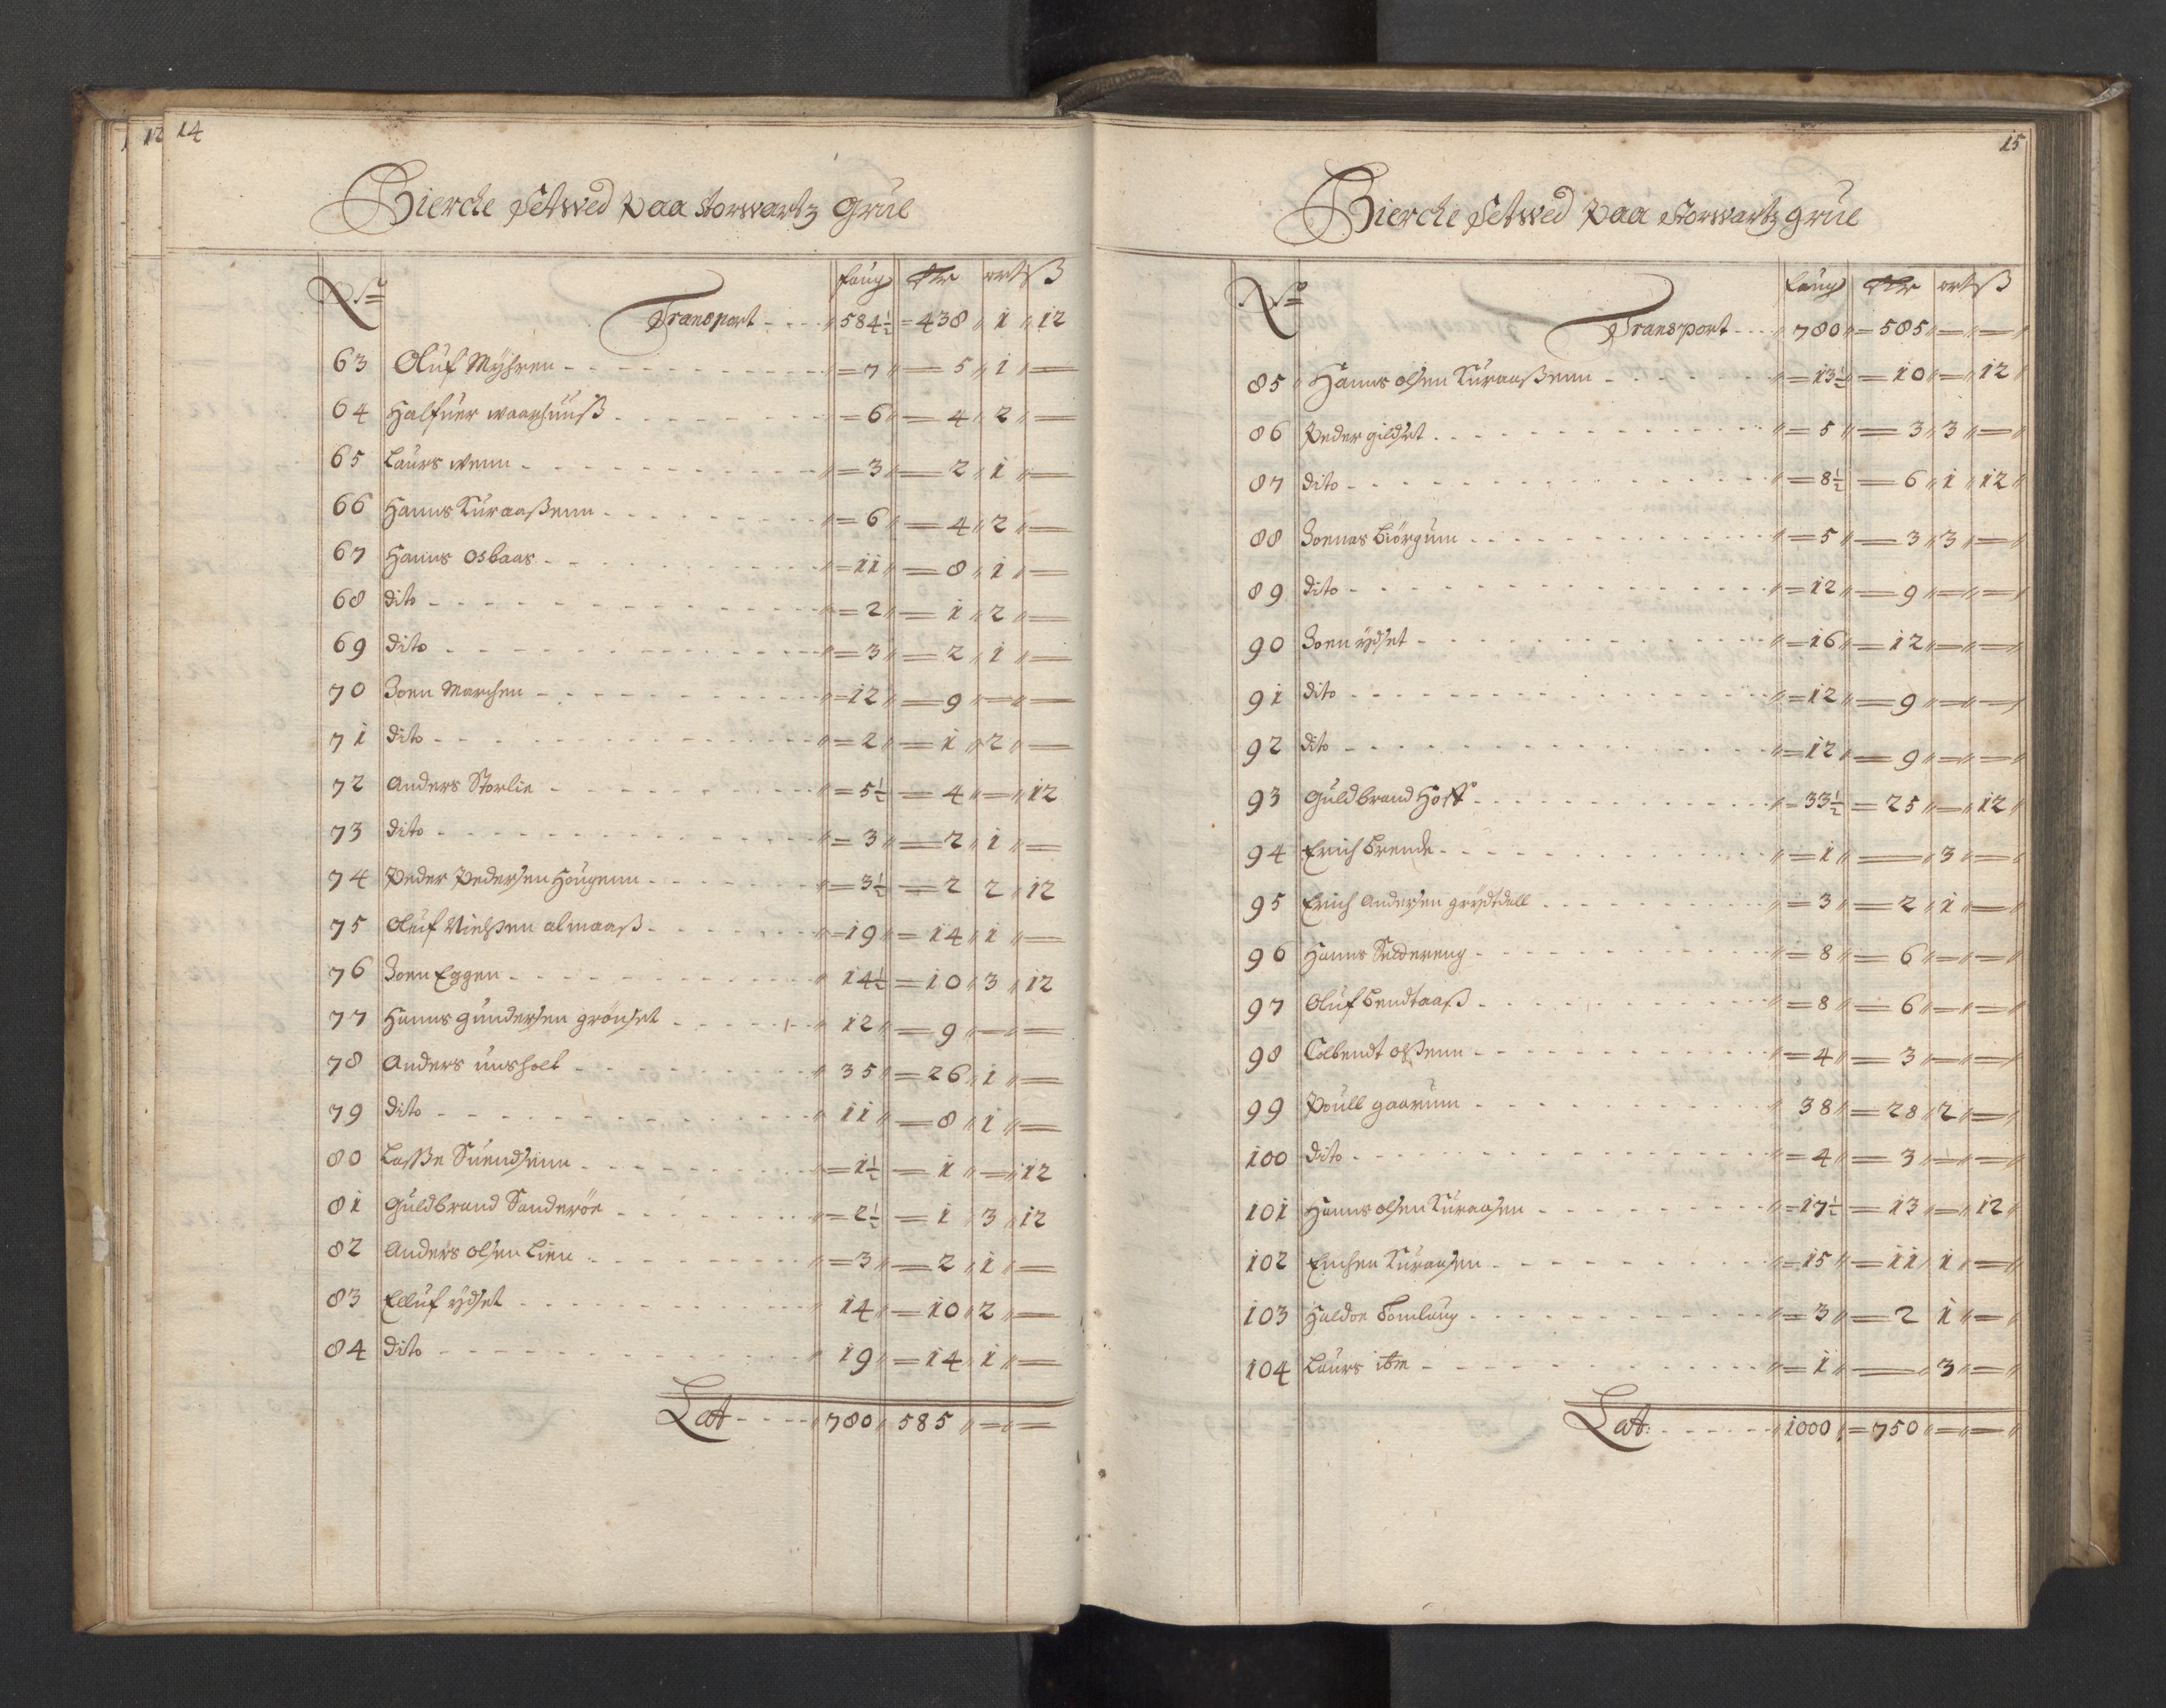 12 14
Bierche Setwed paa Storwartz Grue
No faug Rdr ort ß
Transport 584½ 438 1 12
63 Oluf Mÿhren 7 5 1
64 Halfuer waarhuuß 6 4 2
65 Laurs wenn 3 2 1
66 Hanns Kuraaßenn 6 4 2
67 Hanns Osbaas 11 8 1
68 dito 2 1 2
69 dito 3 2 1
70 Joen Marchen 12 9
71 dito 2 1 2
72 Anders Storlie 5½ 4 12
73 dito 3 2 1
74 Peder Pedersen Hougenn 3½ 2 2 12
75 Oluf Nielßen almaaß 19 14 1
76 Joen Eggen 14½ 10 3 12
77 Hanns gundersen grönset 12 9
78 Anders unsholt 35 26 1
79 dito 11 8 1
80 Laße Suendsenn 1½ 1 12
81 Guldbrand Sanderöe 2½ 1 3 12
82 Anders olsen Lien 3 2 1
83 Elluf ÿdset 14 10 2
84 dito 19 14 1
Lat 780 585
15
Bierche Setwed paa Storwartz grue
No faug Rdr ort ß
Transport 780 585
85 Hanns olsen Kuraaßenn 13½ 10 12
86 Peder gildset 5 3 3
87 dito 8½ 6 1 12
88 Joenas Biörgum 5 3 3
89 dito 12 9
90 Joen ÿdset 16 12
91 dito 12 9
92 dito 12 9
93 Guldbrand Hoff 33½ 25 12
94 Erich Brende 1 3
95 Erich Andersen grÿdtdall 3 2 1
96 Hanns 8 6
97 Oluf Bendtaaß 8 6
98 Colbendt olßenn 4 3
99 Poull gaarum 38 28 2
100 dito 4 3
101 Hanns olsen Kuraasen 17½ 13 12
102 Kuraasen 15 11 1
103 Haldor Tomlaug 3 2 1
104 Laurs ibm 1 3
Lat 1000 750